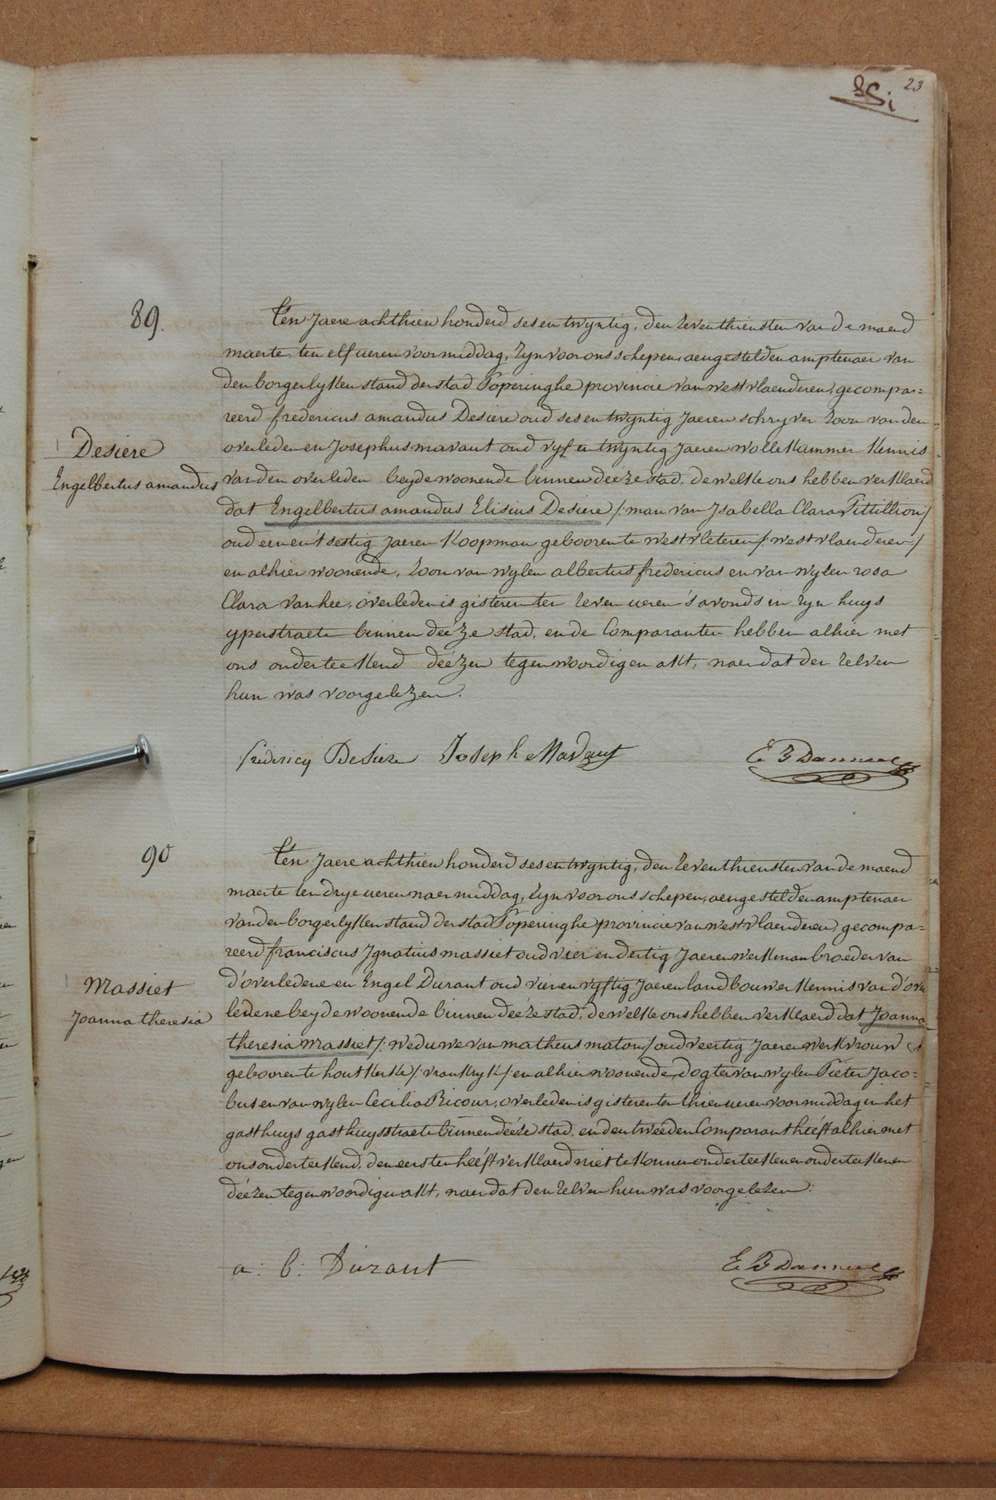 23
89.
Desiere
Engelbertus amandus
Ten Jaere achthien honderd ses en twyntig, den zeventhiensten van de maend
maerte ten elf ueren voormiddag, zyn voor ons schepen, aengestelden amptenaer van
den borgerlyken stand der stad Poperinghe provincie van westvlaenderen, gecompa=
reerd fredericus amandus Desiere oud ses en twyntig Jaeren schryver zoon van den
overleden en Josephus mavaut oud vyf en twyntig Jaeren wollekammer kennis
van den overleden beyde woonende binnen deéze stad, de welke ons hebben verklaerd
dat Engelbertus amandus Elisius Desiere /: man van Isabella Clara Pittillion/
oud een en t'sestig jaeren koopman gebooren te westvleteren /westvlaenderen/
en alhier woonende, zoon van wylen albertus fredericus en van wylen rosa
Clara vanhee, overleden is gisteren ten zeven ueren 's avonds in zyn huys
yperstraete binnen deéze stad, ende Comparanten hebben alhier met
ons onderteekend deézen tegenwoordigen akt, naer dat den zelven
hun was voorgelezen.
fredericq Desiere Joseph Mavaut
90
Massiet
Joanna theresia
Ten Jaere achthien honderd ses en twyntig, den zeventhiensten van de maend
maerte ten drye ueren naermiddag, zyn voor ons schepen, aengestelden amptenaer
van den borgerlyken stand der stad Poperinghe provincie van westvlaenderen, gecompa=
reerd franciscus Ignatius massiet oud vier en dertig Jaeren werkman broeder van
d'overledene en Engel Durant oud vier en vyftig Jaeren landbouwer kennis van d'over
ledene beyde woonende binnen deéze stad, de welke ons hebben verklaerd dat Joanna
theresia massiet /: weduwe van matheus maton / oud veertig Jaeren werkvrouw
gebooren te houtkerke / vrankryk / en alhier woonende, dogter van wylen Pieter Jaco=
bus en van wylen Cecilia Ricour, overleden is gisteren ten thien ueren voormiddag in het
gasthuys gasthuysstraete binnen deéze stad, en den tweeden Comparant heéft alhier met
ons onderteekend, den eersten heéft verklaerd niet te konnen onderteekenen onderteekenen
deézen tegenwoordigen akt, naer dat den zelven hun was voorgelezen.
a: b: Durant